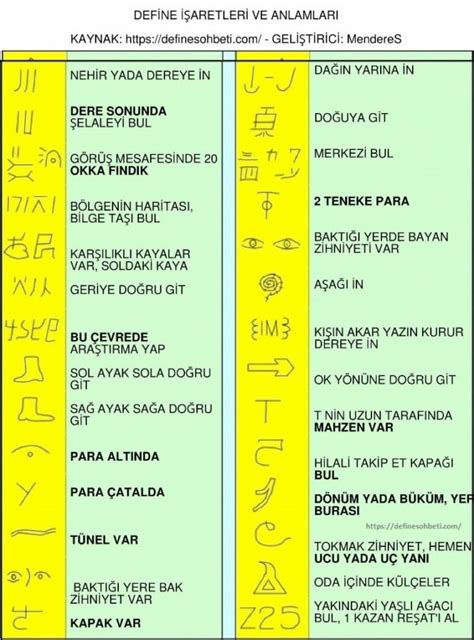 DEFİNE İŞARETLERİ VE ANLAMLARI
KAYNAK: https://definesohbeti.com/ - GELİŞTİRİCİ: MendereS
NEHİR YADA DEREYE İN
DERE SONUNDA
ŞELALEYİ BUL
GÖRÜŞ MESAFESİNDE 20
OKKA FINDIK
BÖLGENİN HARİTASI,
BİLGE TAŞI BUL
KARŞILIKLI KAYALAR
VAR, SOLDAKİ KAYA
GERİYE DOĞRU GİT
BU ÇEVREDE
ARAŞTIRMA YAP
SOL AYAK SOLA DOĞRU
GİT
SAĞ AYAK SAĞA DOĞRU
GİT
PARA ALTINDA
PARA ÇATALDA
TÜNEL VAR
BAKTIĞI YERE BAK
ZİHNİYET VAR
KAPAK VAR
DAĞIN YARINA İN
DOĞUYA GİT
MERKEZİ BUL
2 TENEKE PARA
BAKTIĞI YERDE BAYAN
ZİHNİYETİ VAR
AŞAĞI İN
IM
KIŞIN AKAR YAZIN KURUR
DEREYE İN
OK YÖNÜNE DOĞRU GİT
T
T NİN UZUN TARAFINDA
MAHZEN VAR
HİLALİ TAKİP ET KAPAĞI
BUL
DÖNÜM YADA BÜKÜM, YER
BURASI
https://definesohbeti.com/
TOKMAK ZİHNİYET, HEMEN
UCU YADA UÇ YANI
ODA İÇİNDE KÜLÇELER
Z25
YAKINDAKİ YAŞLI AĞACI
BUL, 1 KAZAN REŞAT'I AL